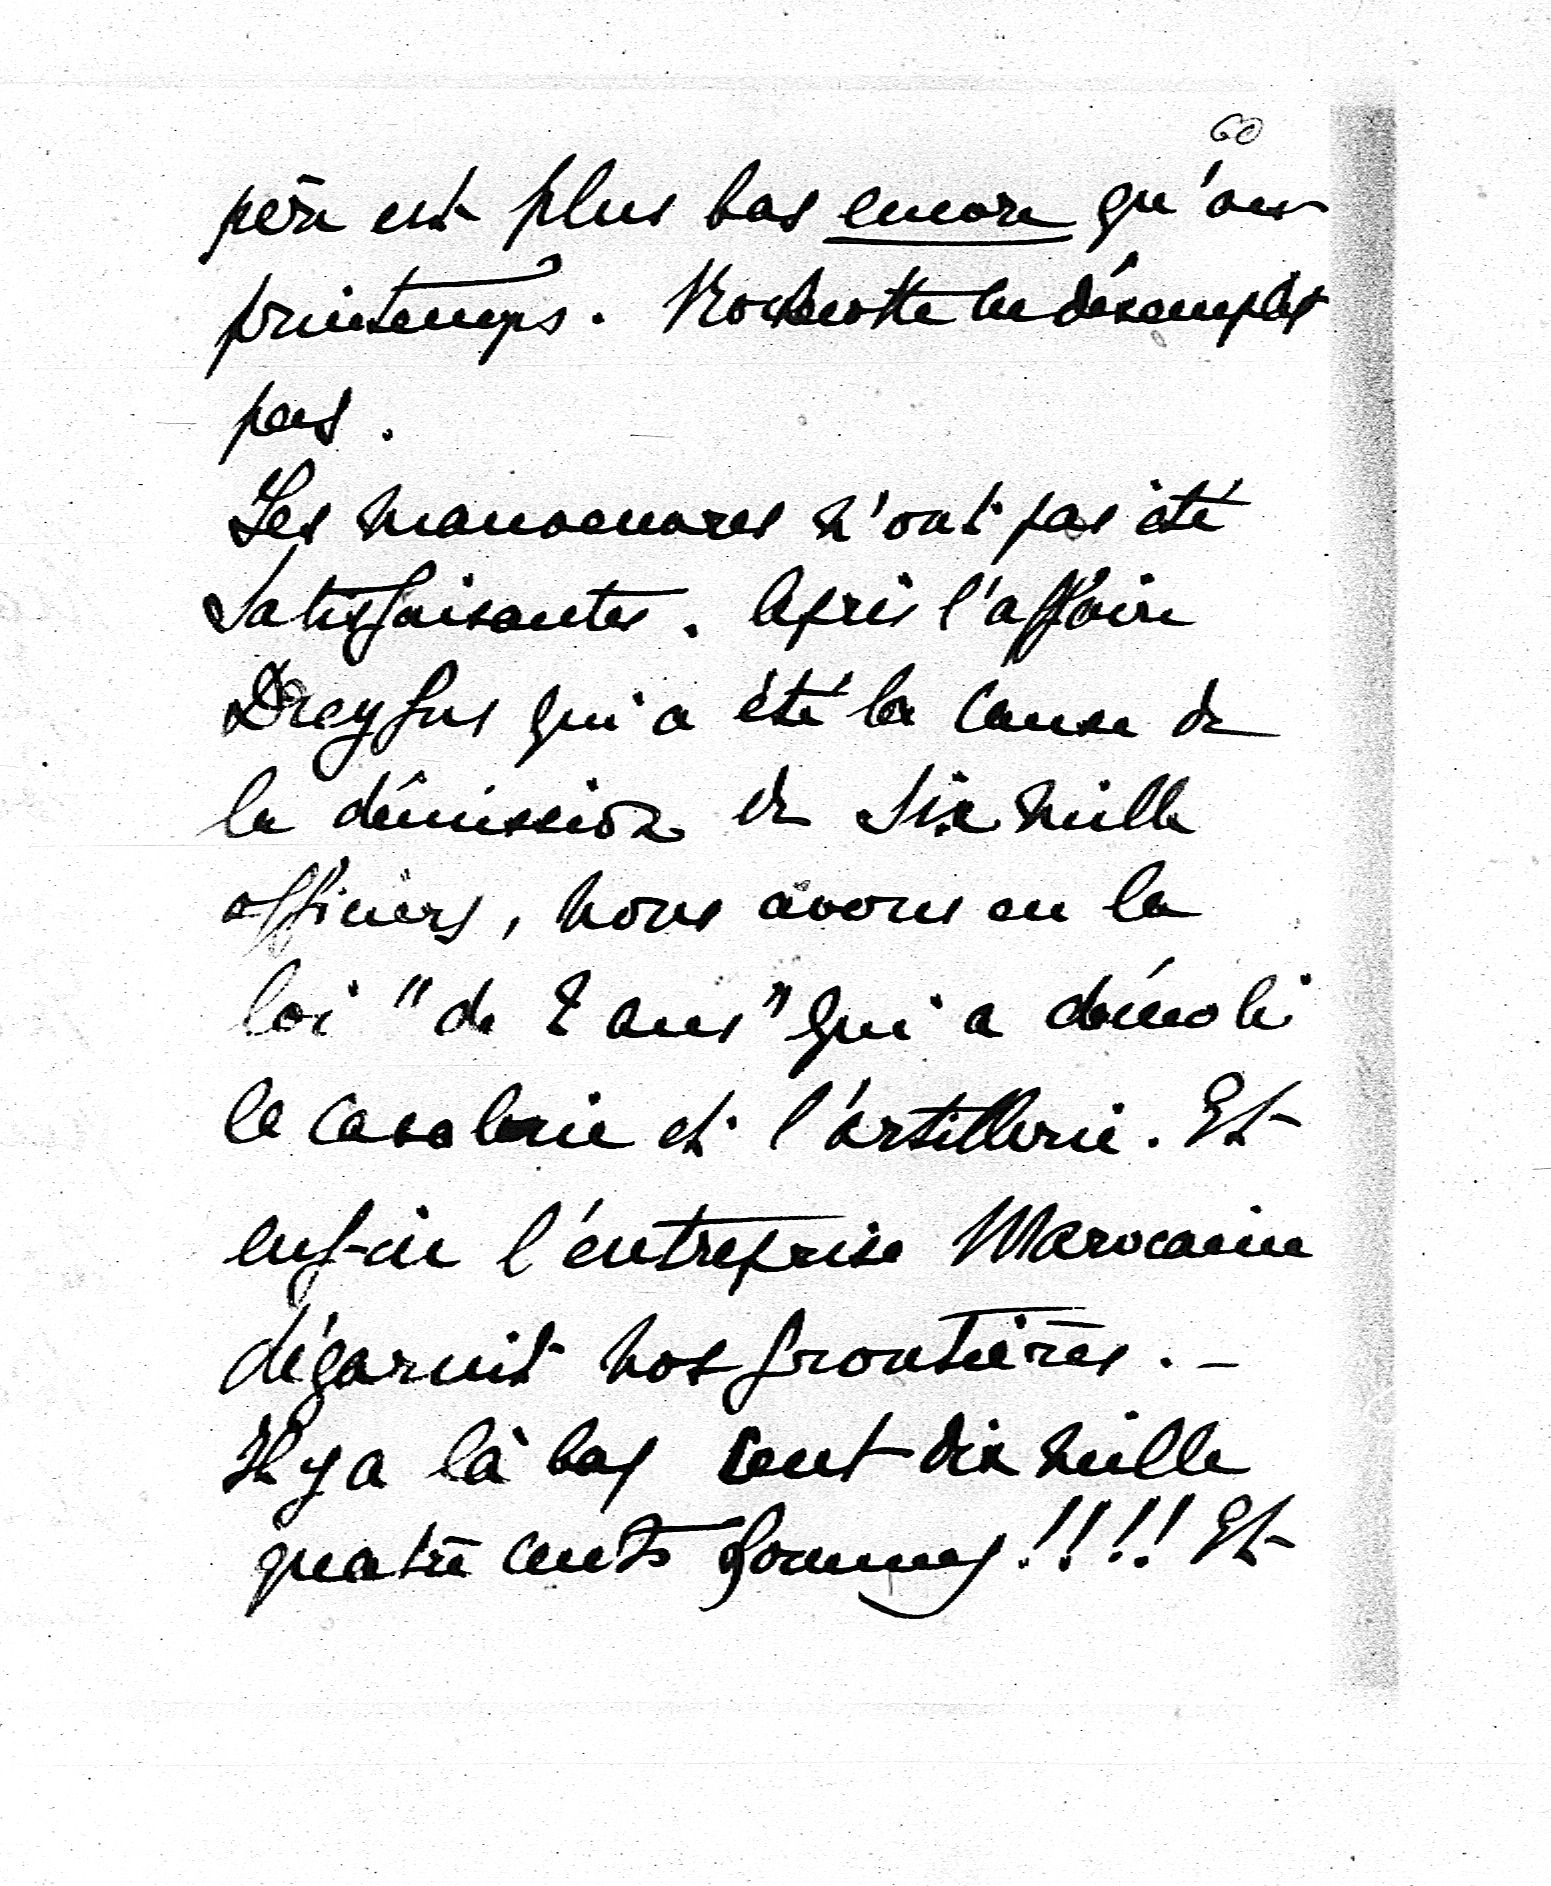 60
père est plus bas encore qu'au
printemps. Rochette ne désemplit
pas.
Les manoeuvres n'ont pas été
satisfaisantes. Après l'affaire
Dreyfus qui a été la cause de
la démission de six mille
officiers, nous avons eu la
loi "de 2 ans" qui a démoli
la cavalerie et l'artillerie. Et
enfin l'entreprise Marocaine
dégarnit nos frontières. –
Il y a là bas cent dix mille
quatre cents hommes!!!! Et